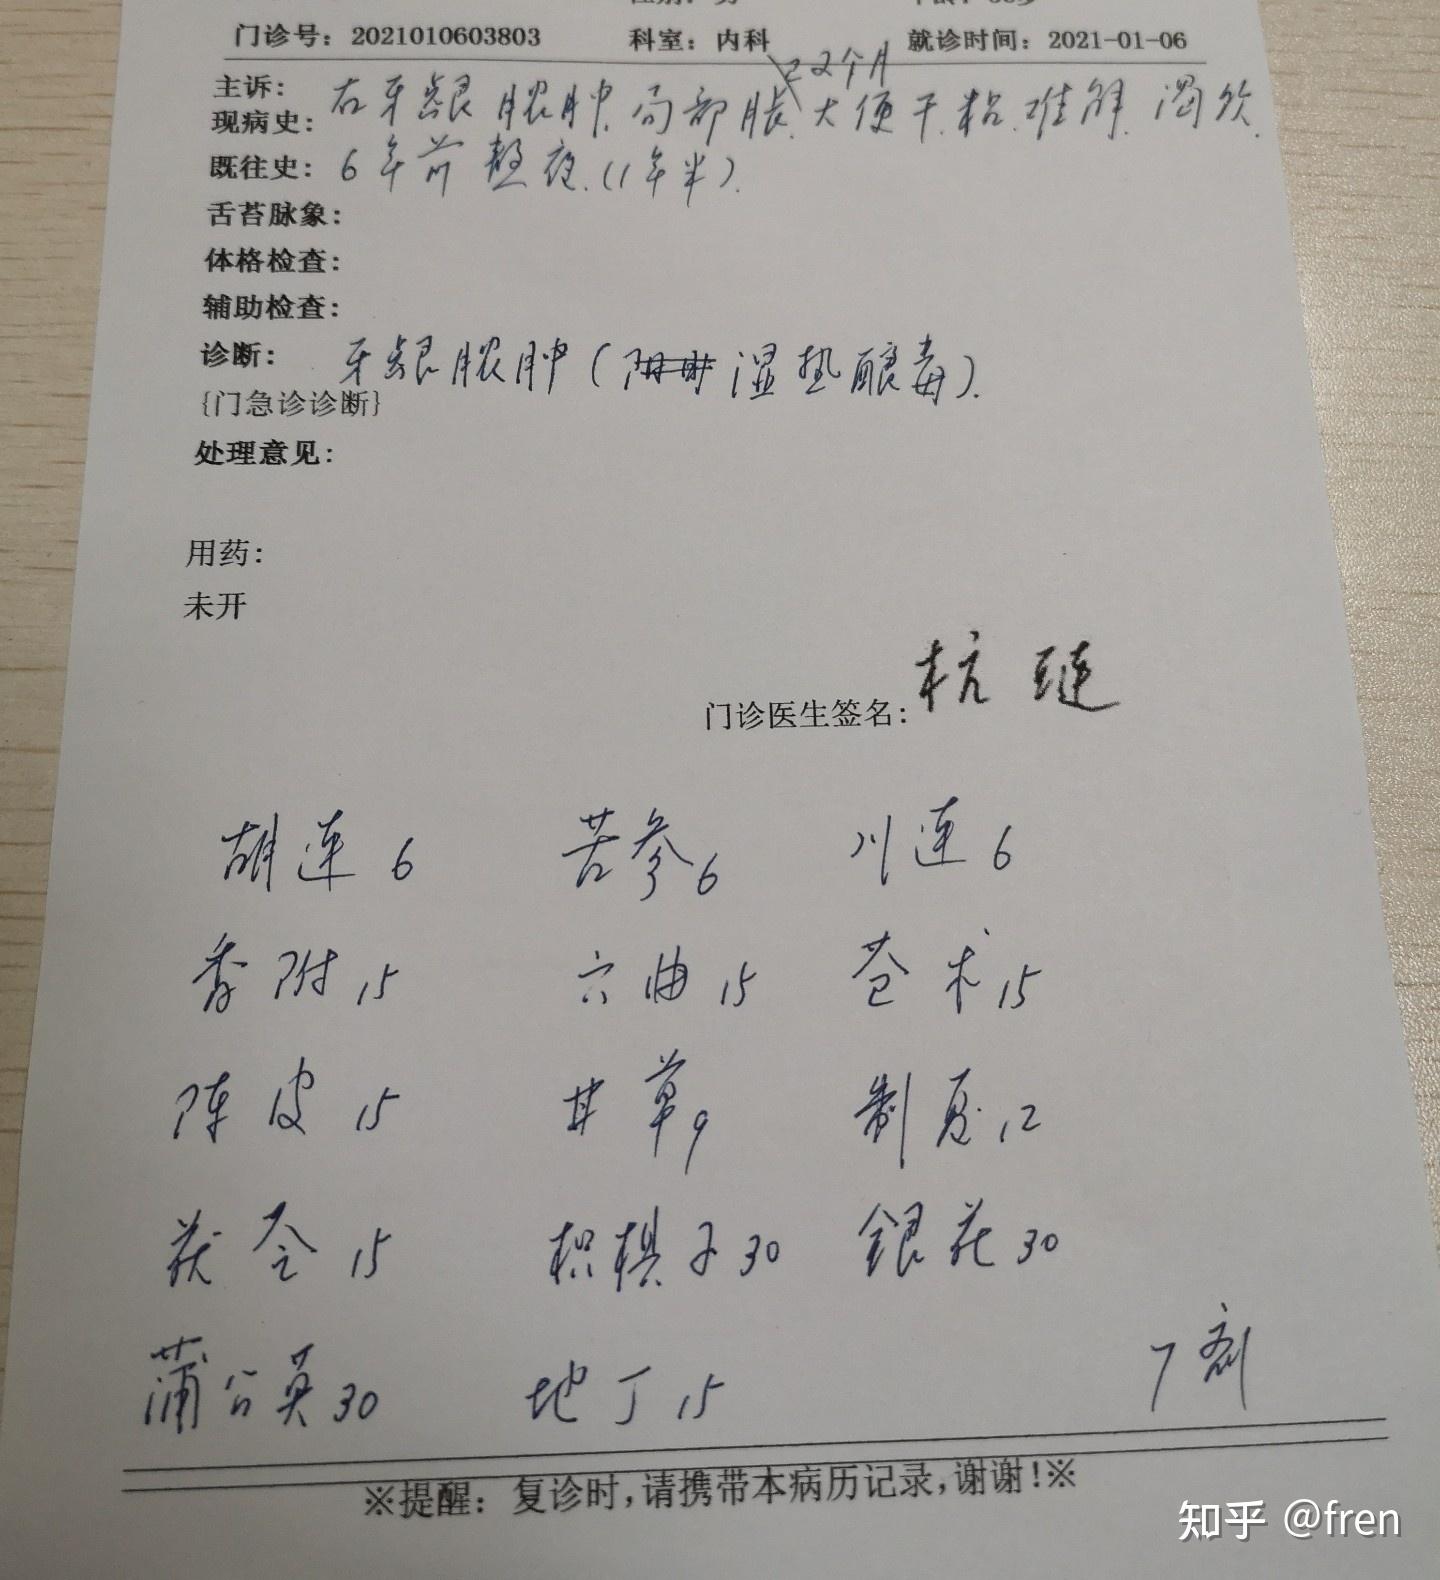 门诊号：2021010603803 科室：内科 就诊时间：2021-01-06
已2个月
主诉： 右牙龈脓肿，局部胀，大便干，粘，难解，渴饮，
现病史：
既往史： 6年前熬夜，(1年半)．
舌苔脉象：
体格检查：
辅助检查：
诊断： 牙龈脓肿（湿热酿毒）．
{门急诊诊断}
处理意见：
用药：
未开
门诊医生签名：杭琏
胡连6 苦参6 川连6
香附15 六曲15 苍术15
陈皮15 甘草9 制夏12
茯苓15 枳椇子30 銀花30
蒲公英30 地丁15 7剂
※提醒：复诊时,请携带本病历记录,谢谢!※
知乎 @fren